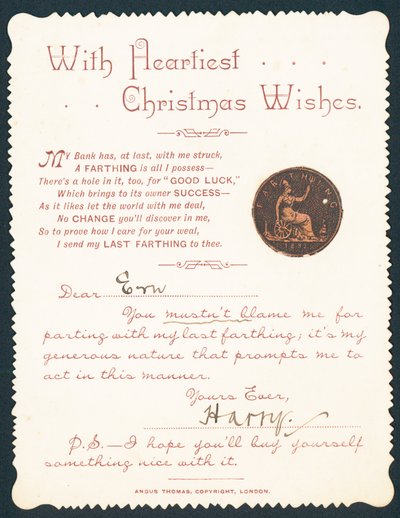 With Heartiest . . .
. . Christmas Wishes.
MY Bank has, at last, with me struck,
A FARTHING is all I possess—
There's a hole in it, too, for "GOOD LUCK,"
Which brings to its owner SUCCESS—
As it likes let the world with me deal,
No CHANGE you'll discover in me,
So to prove how I care for your weal,
I send my LAST FARTHING to thee.
FARTHING
Dear Ern
You mustn't blame me for
parting with my last farthing; it's my
generous nature that prompts me to
act in this manner.
Yours Ever,
Harry.
P.S.—I hope you'll buy yourself
something nice with it.
ANGUS THOMAS, COPYRIGHT, LONDON.